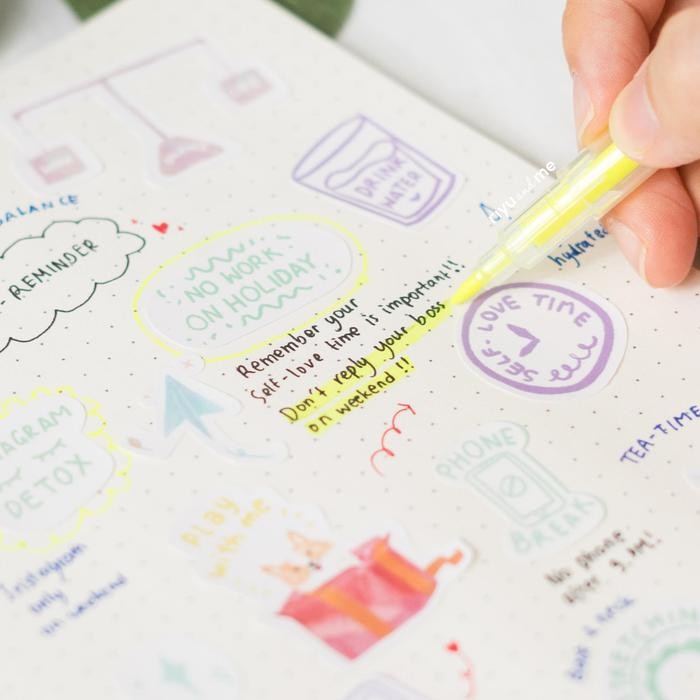 BALANCE
- REMINDER
DRINK
WATER
NO WORK
ON HOLIDAY
ayu and me
hydrated
Remember your
Self-love time is important!!
Don't reply your boss
on weekend !!
SELF-LOVE TIME
DETOX
Instagram
only
on weekend
PHONE
BREAK
TEA-TIME
Play
with me
No phone
after 9 PM!